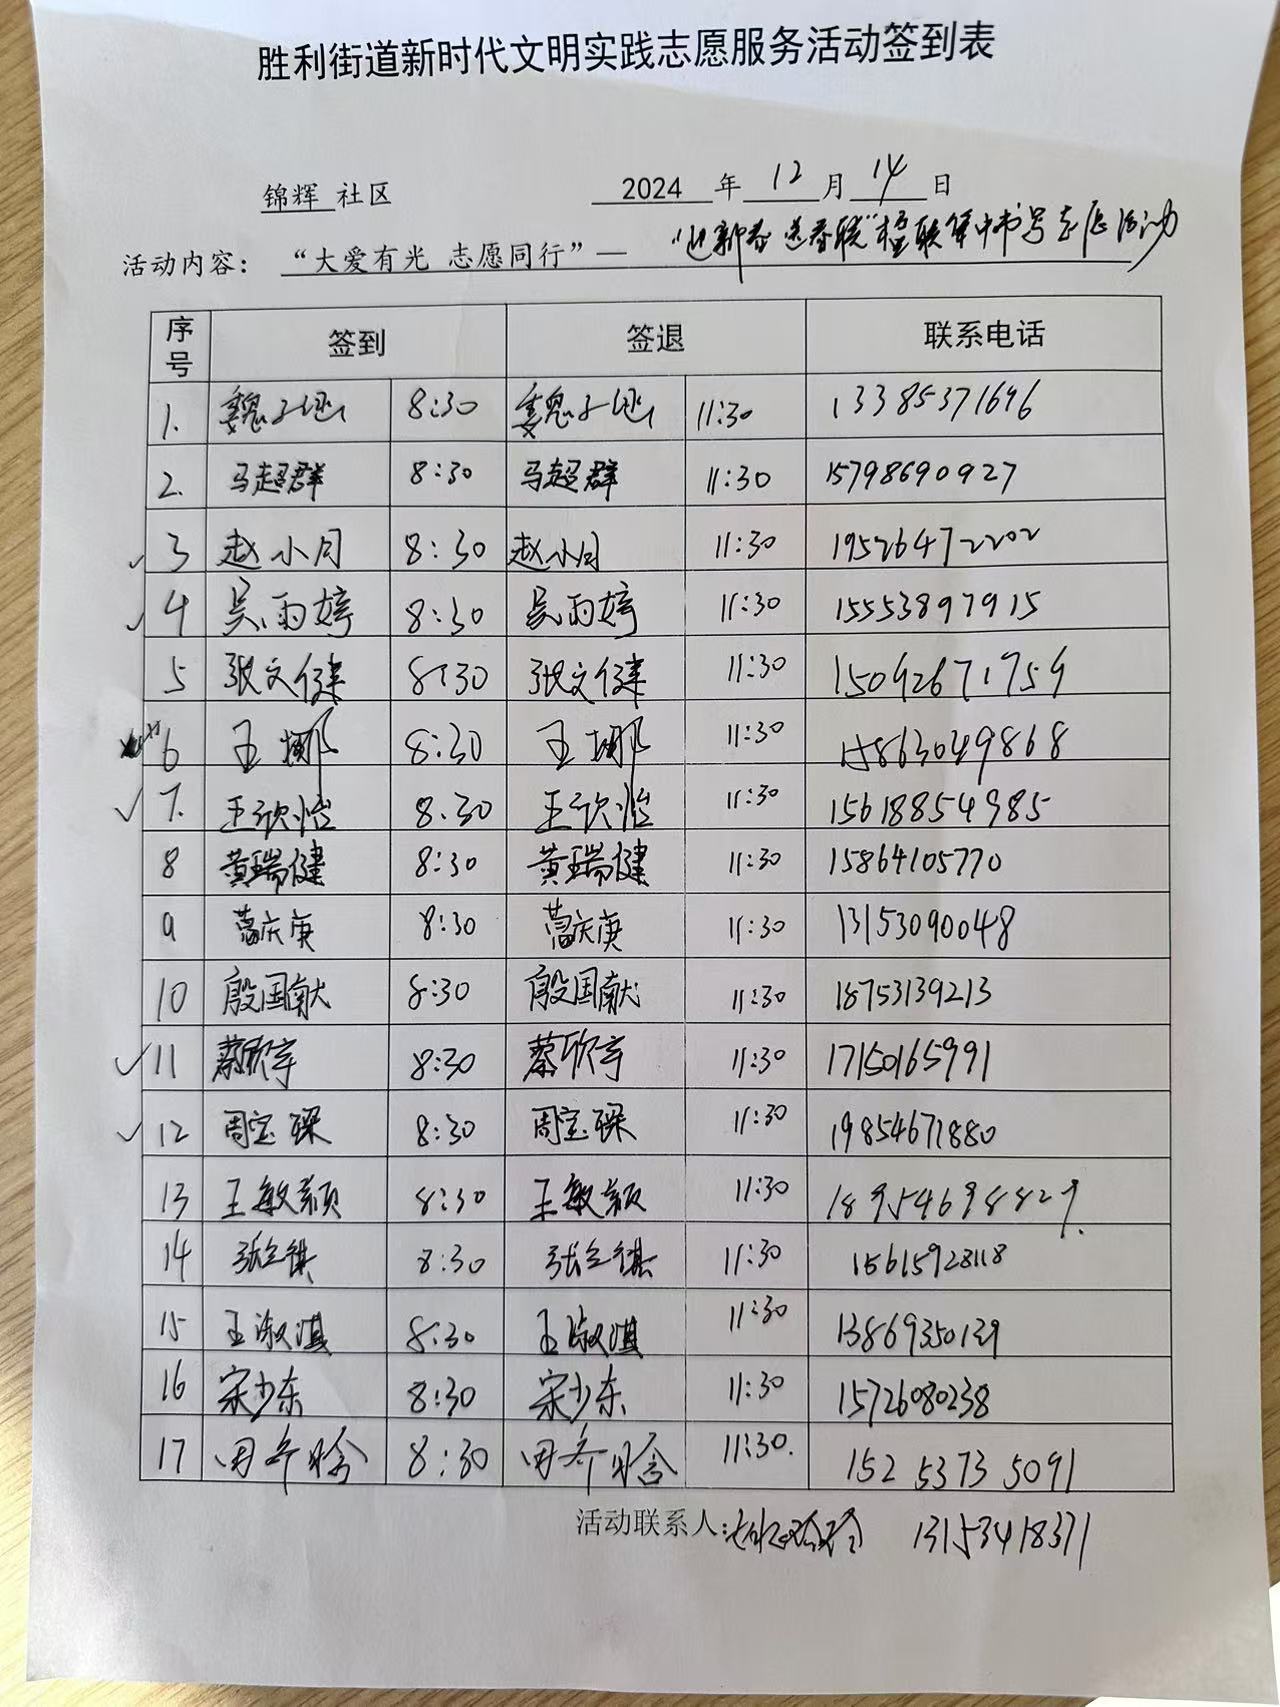 胜利街道新时代文明实践志愿服务活动签到表
锦辉 社区 2024 年 12 月 14 日
活动内容： “大爱有光 志愿同行”— “迎新春 送春联”楹联集中书写志愿活动
序号 签到 签退 联系电话
1. 魏 8:30 魏 11:30 13385371696
2. 马超群 8:30 马超群 11:30 15798690927
3 赵小月 8:30 赵小月 11:30 19526472202
4 吴雨婷 8:30 吴雨婷 11:30 15553897915
5 张文健 8:30 张文健 11:30 15092671759
6 王娜 8:30 王娜 11:30 15863049868
7. 王欣怡 8:30 王欣怡 11:30 15618854985
8 黄瑞健 8:30 黄瑞健 11:30 15864105770
9 庆庚 8:30 庆庚 11:30 13153090048
10 殷国献 8:30 殷国献 11:30 18753139213
11 蔡欣宇 8:30 蔡欣宇 11:30 17150165991
12 周宝琛 8:30 周宝琛 11:30 19854671880
13 王敏颖 8:30 王敏颖 11:30 18954698827
14 张 8:30 张 11:30 15615928118
15 王淑淇 8:30 王淑淇 11:30 13869350139
16 宋少东 8:30 宋少东 11:30 15726080238
17 田 8:30 田 11:30. 152 5373 5091
活动联系人： 13153418371